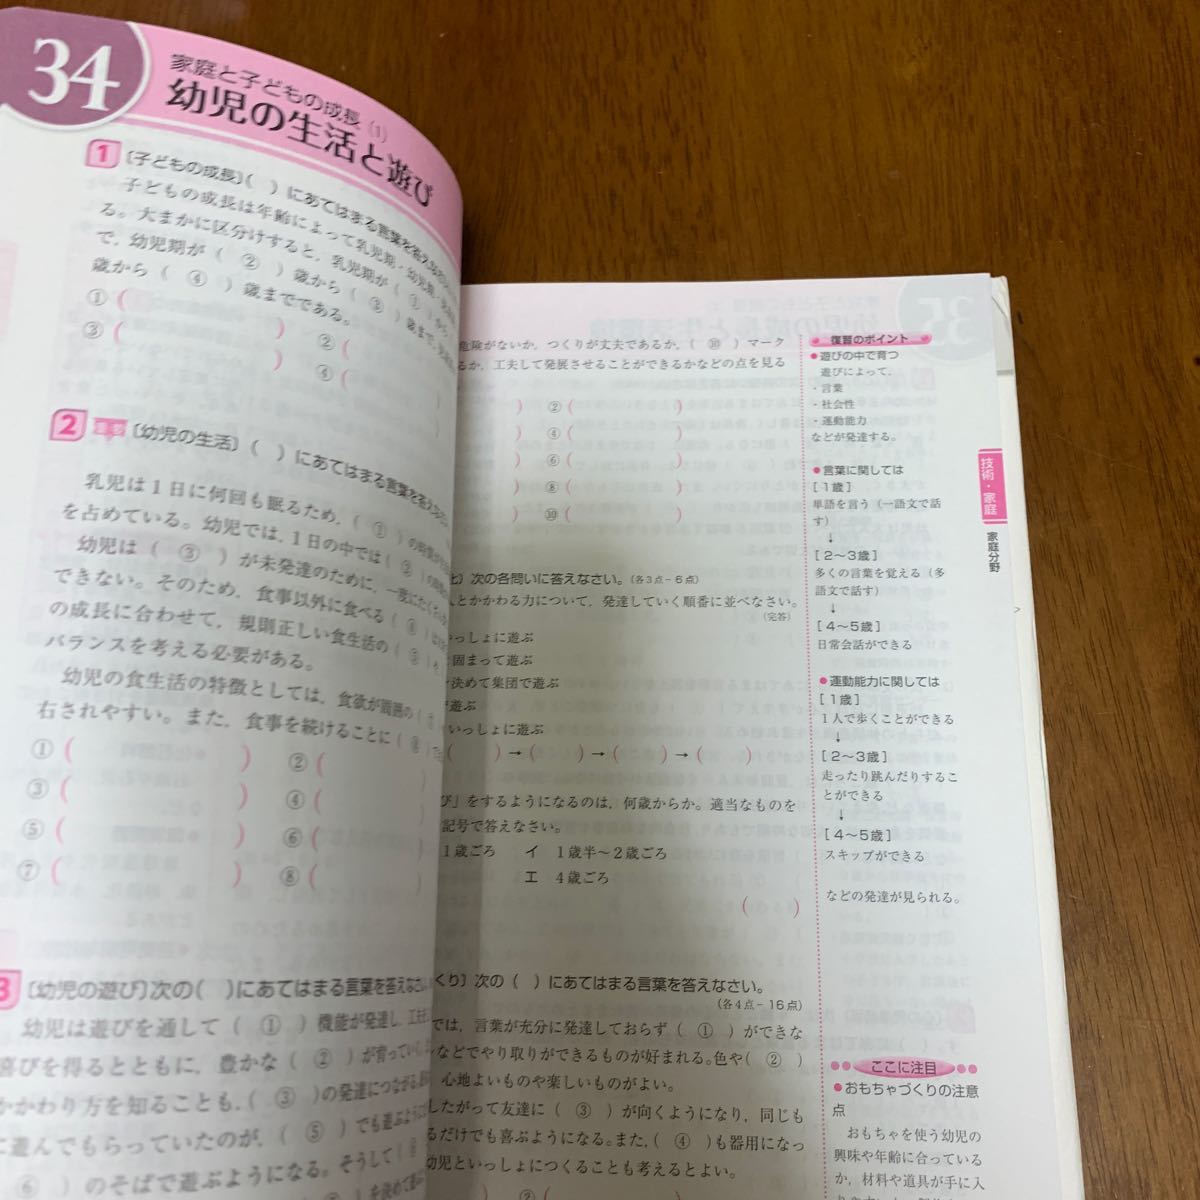 34
家庭と子どもの成長(1)
幼児の生活と遊び
1 〔子どもの成長〕( )にあてはまる言葉を答えな
子どもの成長は年齢によって乳児期・幼児期・
る。大まかに区分けすると，乳児期が( ① )から
で，幼児期が( ② )歳から( ③ )歳まで，
歳から( ④ )歳までである。
①( ) ②(
③( ) ④(
2 重要 〔幼児の生活〕( )にあてはまる言葉を答えな
乳児は1日に何回も眠るため，( ① )の時
を占めている。幼児では，1日の中では( ② )の
幼児は( ③ )が未発達のために，一度にたくさ
できない。そのため，食事以外に食べる( ④ )
の成長に合わせて，規則正しい食生活の( ⑤ )
バランスを考える必要がある。
幼児の食生活の特徴としては，食欲が周囲の( ⑦
右されやすい。また，食事を続けることに( ⑧ )
①( ) ②(
③( ) ④(
⑤( ) ⑥(
⑦( ) ⑧( )
3 〔幼児の遊び〕次の( )にあてはまる言葉を答えなさい
幼児は遊びを通して( ① )機能が発達し，工夫
喜びを得るとともに，豊かな( ② )が育っていく。
かかわり方を知ることも，( ③ )の発達につながる。
に遊んでもらっていたのが，( ⑤ )でも遊ぶように
( ⑥ )のそばで遊ぶようになる。そうして(
)を決めて遊
危険がないか，つくりが丈夫であるか，( ⑩ )マーク
るか，工夫して発展させることができるかなどの点を見る
) ②( )
) ④( )
) ⑥( )
) ⑧( )
) ⑩( )
次の各問いに答えなさい。(各3点－6点)
とかかわる力について，発達していく順番に並べなさい。
(完答)
いっしょに遊ぶ
固まって遊ぶ
決めて集団で遊ぶ
遊ぶ
いっしょに遊ぶ
( )→( )→( )→( )
び」をするようになるのは，何歳からか。適当なものを
記号で答えなさい。
1歳ごろ イ 1歳半～2歳ごろ
エ 4歳ごろ
( )
くり〕次の( )にあてはまる言葉を答えなさい。
(各4点－16点)
では，言葉が充分に発達しておらず( ① )ができな
などでやり取りができるものが好まれる。色や( ② )
心地よいものや楽しいものがよい。
したがって友達に( ③ )が向くようになり，同じも
るだけでも喜ぶようになる。また，( ④ )も器用になっ
幼児といっしょにつくることも考えるとよい。
)②(
復習のポイント
●遊びの中で育つ
遊びによって，
・言葉
・社会性
・運動能力
などが発達する。
●言葉に関しては
[1歳]
単語を言う（一語文で話
す）
↓
[2～3歳]
多くの言葉を覚える（多
語文で話す）
↓
[4～5歳]
日常会話ができる
●運動能力に関しては
[1歳]
1人で歩くことができる
↓
[2～3歳]
走ったり跳んだりするこ
とができる
↓
[4～5歳]
スキップができる
などの発達が見られる。
ここに注目
●おもちゃづくりの注意
点
おもちゃを使う幼児の
興味や年齢に合っている
か，材料や道具が手に入
技術・家庭
家庭分野
35